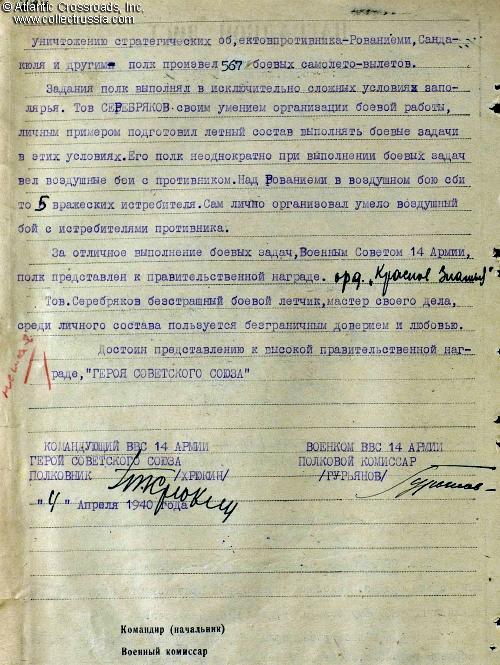 © Atlantic Crossroads, Inc.
www.collectrussia.com
уничтожению стратегических об,ектовпротивника-Рованиеми,Санда-
кюля и другим полк произвел 567 боевых самолето-вылетов.
Задания полк выполнял в исключительно сложных условиях запо-
лярья. Тов СЕРЕБРЯКОВ своим умением организации боевой работы,
личным примером подготовил летный состав выполнять боевые задачи
в этих условиях.Его полк неоднократно при выполнении боевых задач
вел воздушные бои с противником.Над Рованиеми в воздушном бою сби
то 5 вражеских истребителя.Сам лично организовал умело воздушный
бой с истребителями противника.
За отличное выполнение боевых задач,Военным Советом 14 Армии,
полк представлен к правительственной награде. орд. „Красное Знамя"
Тов.Серебряков безстрашный боевой летчик,мастер своего дела,
среди личного состава пользуется безграничным доверием и любовью.
Достоин представлению к высокой правительственной наг-
раде,"ГЕРОЯ СОВЕТСКОГО СОЮЗА"
КОМАНДУЮЩИЙ ВВС 14 АРМИИ ВОЕНКОМ ВВС 14 АРМИИ
ГЕРОЙ СОВЕТСКОГО СОЮЗА ПОЛКОВОЙ КОМИССАР
ПОЛКОВНИК /ХРЮКИН/ /ГУРЬЯНОВ/
"4" Апреля 1940 года
Командир (начальник)
Военный комиссар